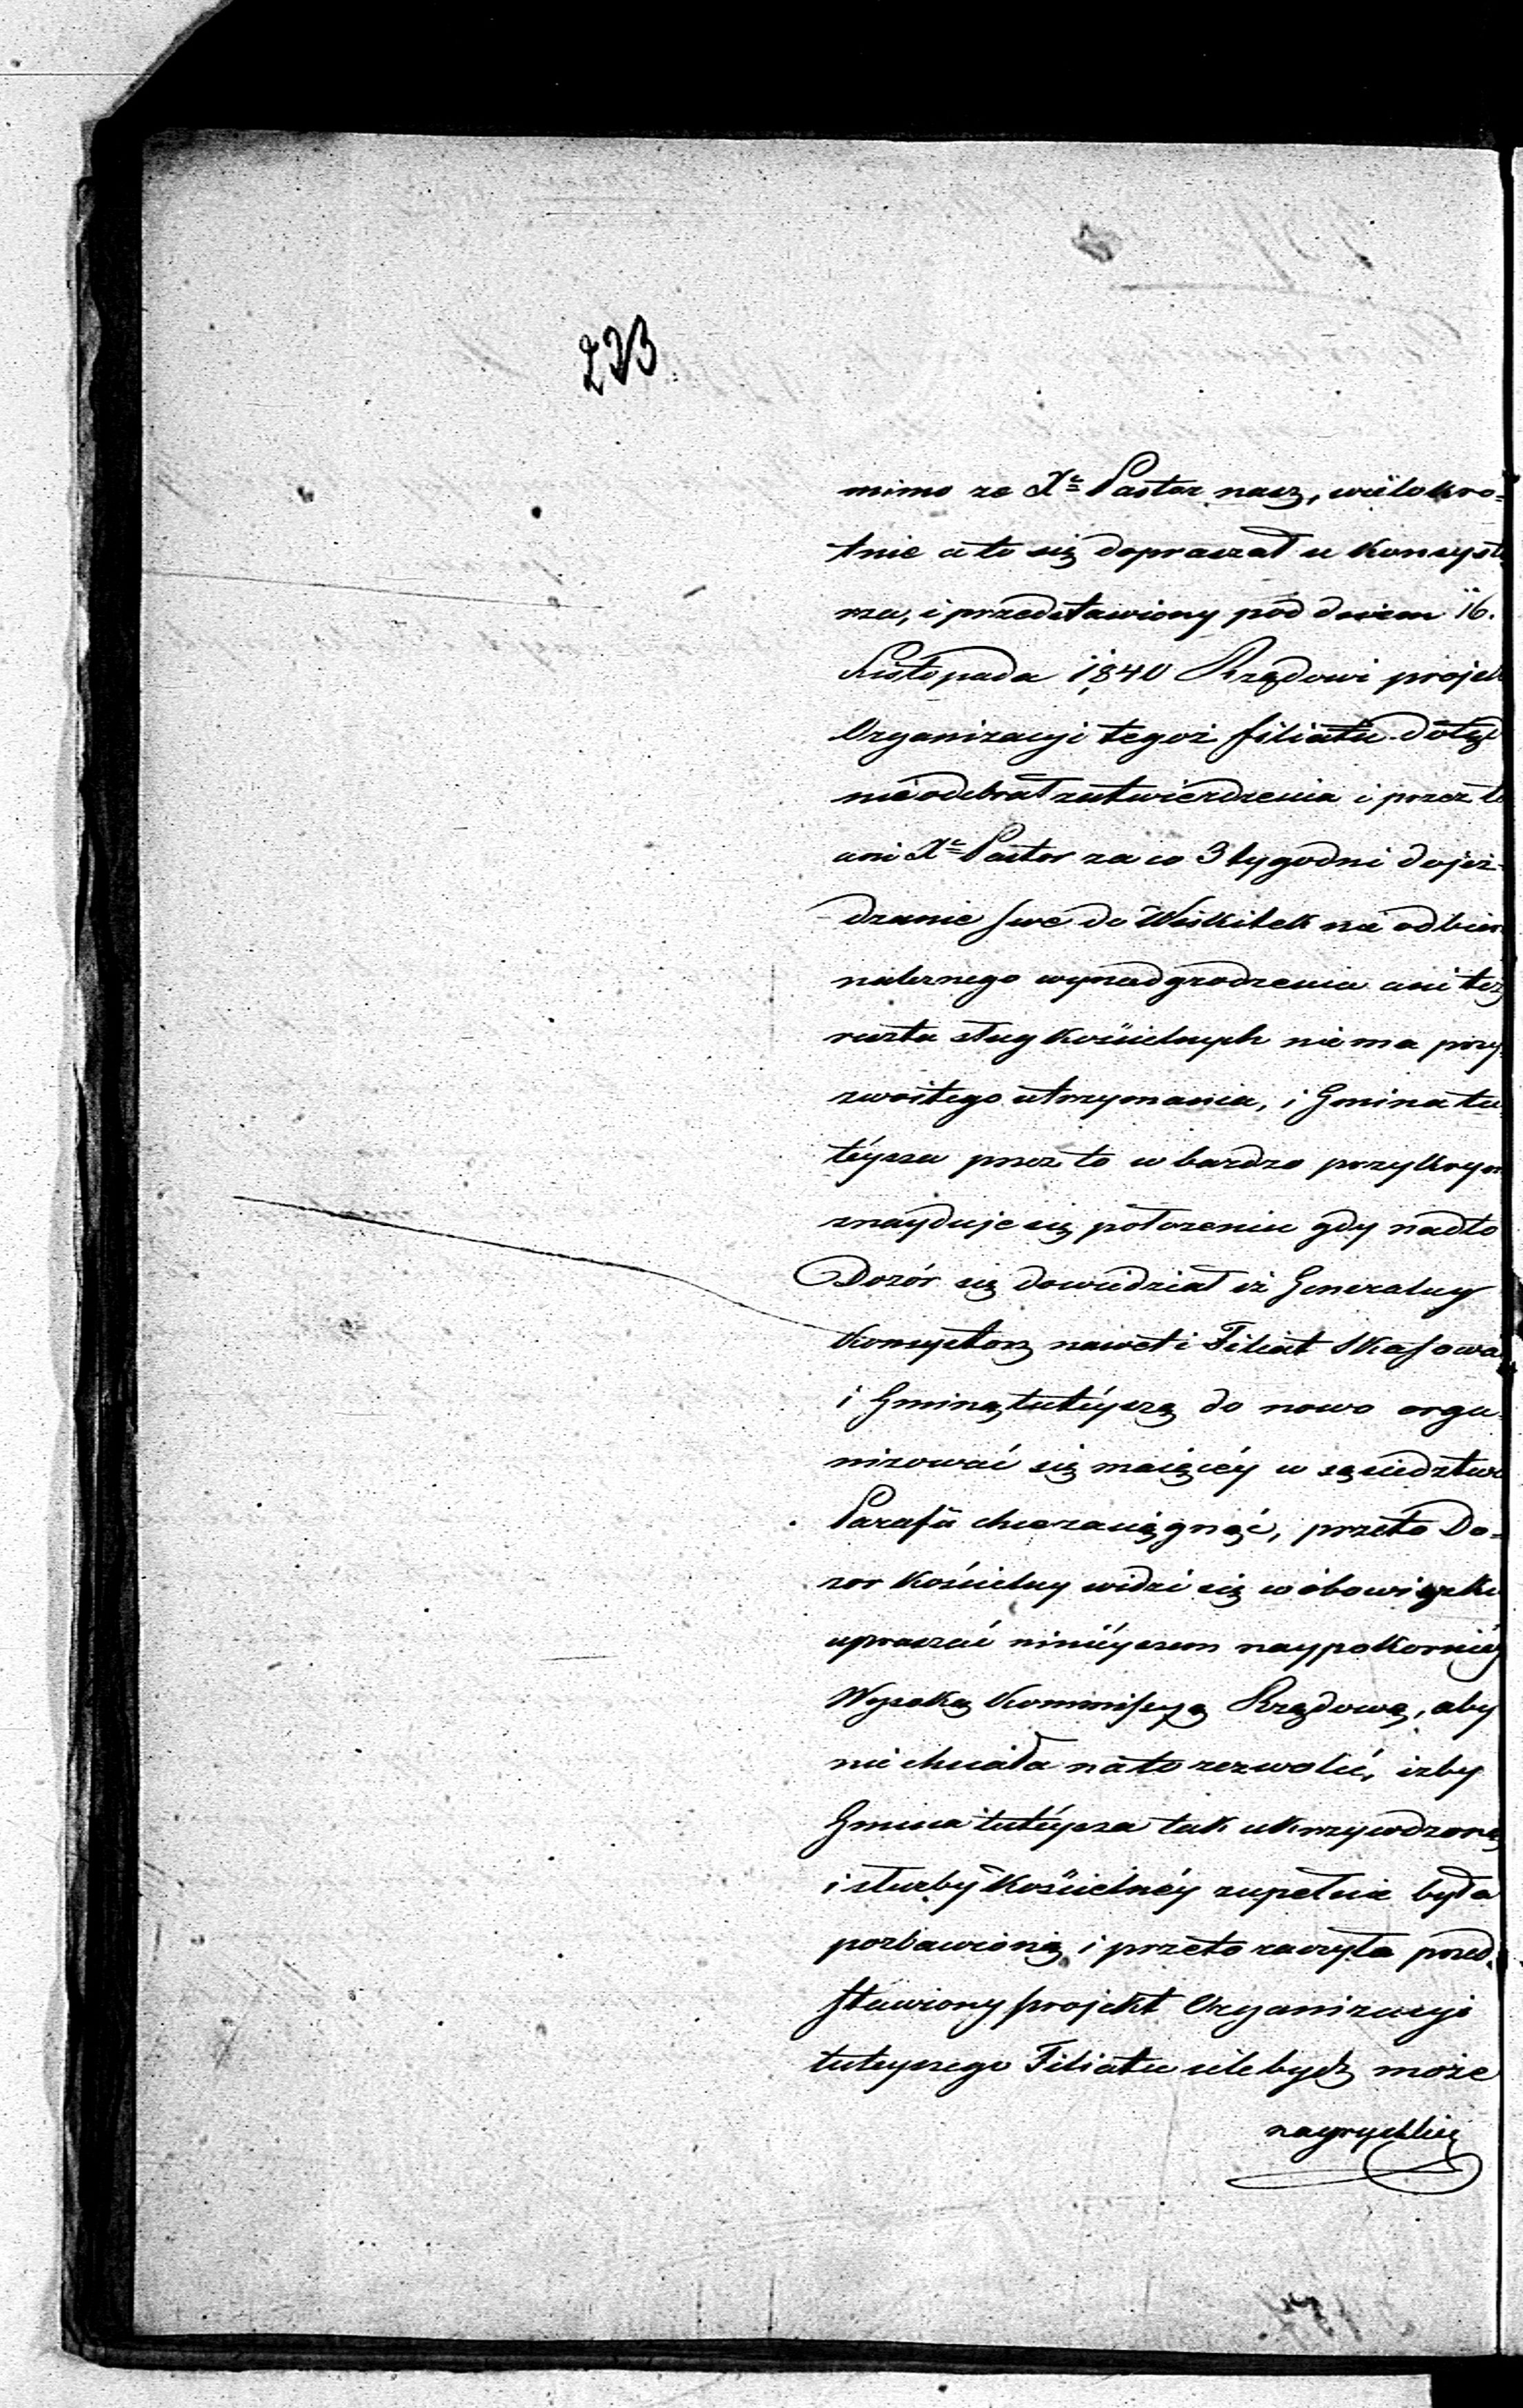 223
mimo ze Xc Pastor nasz, wielokro-
tnie o to się dopraszał u Konsysto
rza, i przedstawiony pod dniem 16.
Listopada 1840 Rządowi projek
Organizacyi tegoż filiatu dotąd
nie odebrał zatwierdzenia i przez to
ani Xc Pastor za co 3 tygodni dojeż-
dzanie swe do Wiskitek nie odbier
należnego wynadgrodzenia ani też
reszta sług kościelnych nie ma przy
zwoitego utrzymania, i Gmina tu
téysza przez to w bardzo przykrym
znayduje się położeniu gdy nadto
Dozór się dowiedział iż Generalny
Konsystorz nawet i Filiał skasować
i Gminę tutéyszą do nowo orga
nizować się maiącéy w sąsiedztwie
Parafii chce zaciągnąć, przeto Do-
zor Kościelny widzi się w obowiązku
upraszać niniéyszem naypokorniéy
Wysoką Kommissyą Rządową, aby
nie chciała na to zezwolić, iżby
Gmina tutéysza tak ukrzywdzoną
i służby Kościelnéy zupełnie była
pozbawioną i przeto raczyła przed
stawiony projekt Organizacyi
tuteyszego Filiatu ile bydź może
nayrychléy